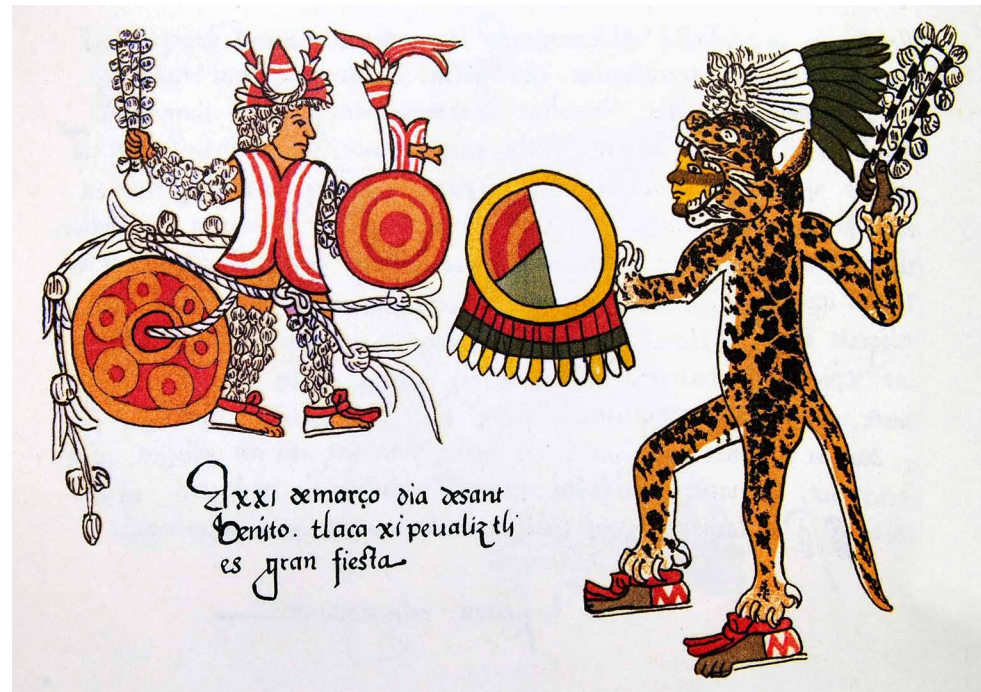 A xxi de março dia de sant
benito. tlaca xi peualiztli
es gran fiesta